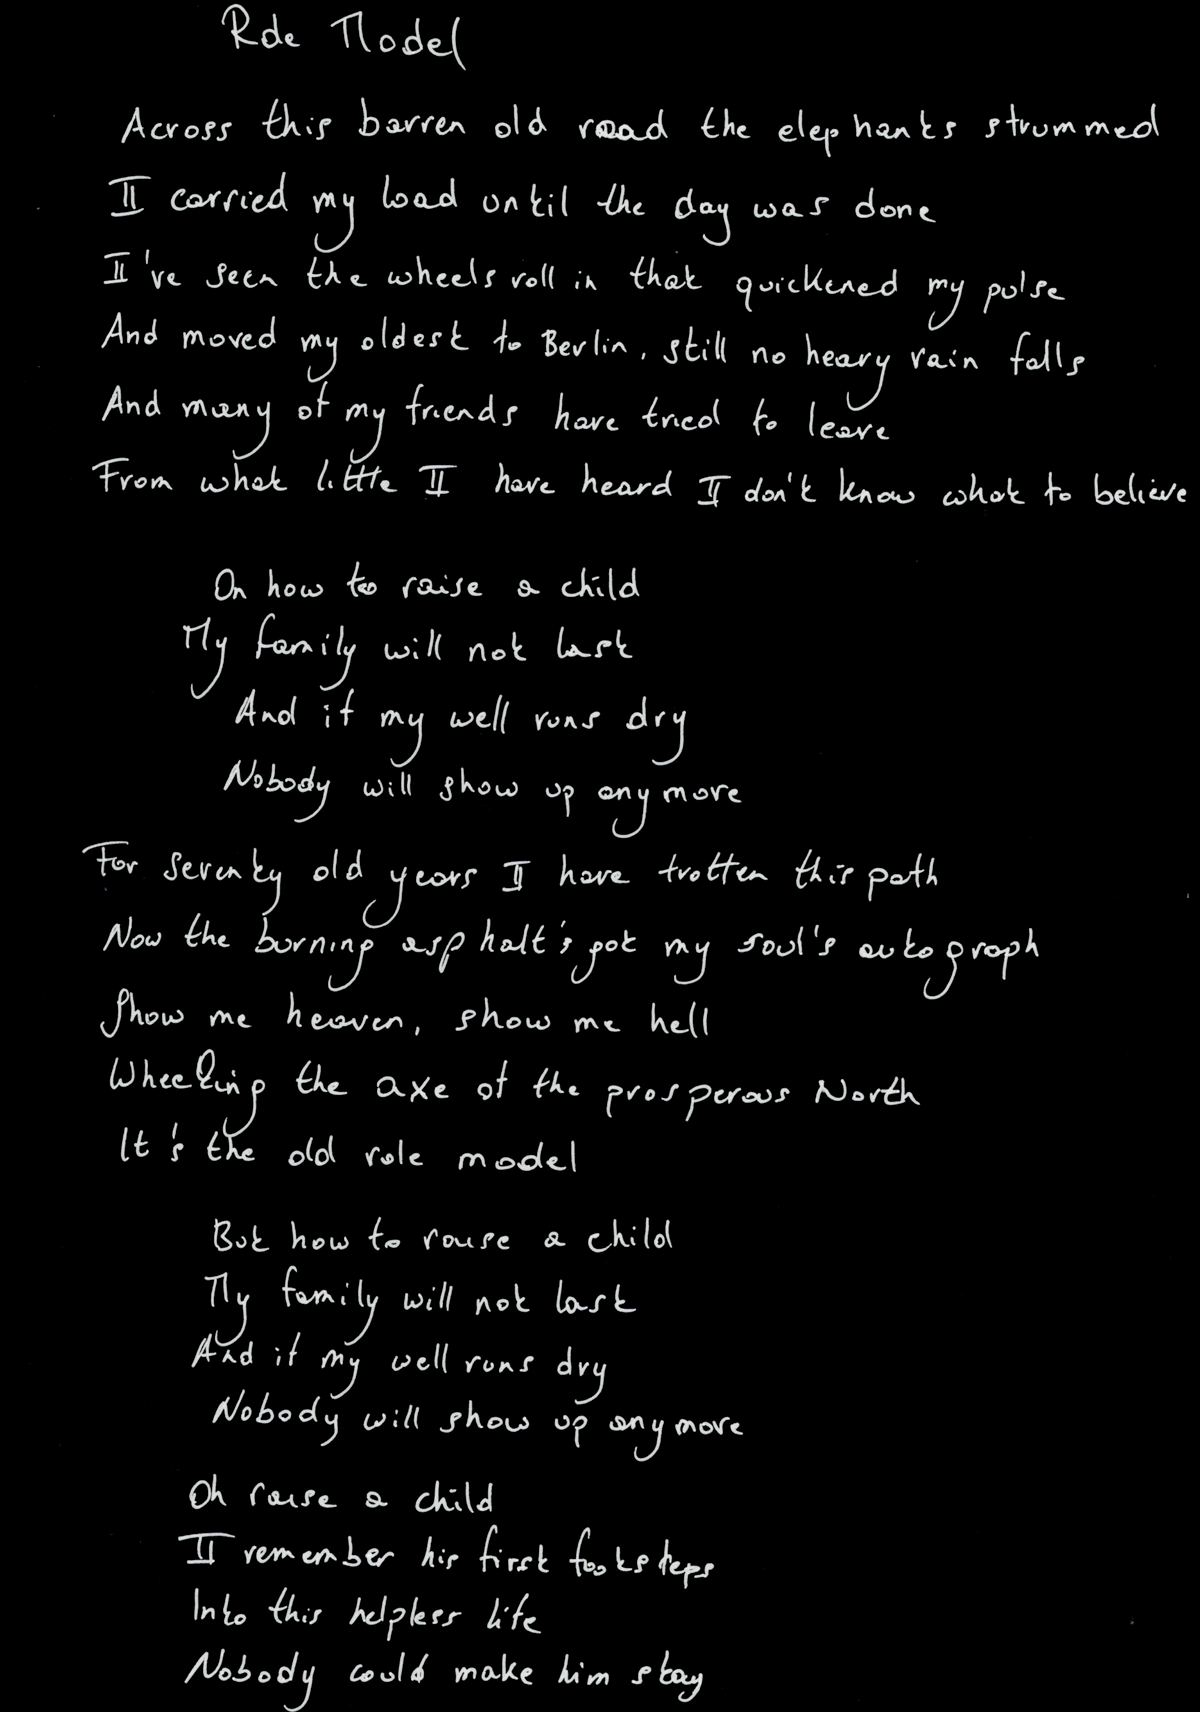 Role Model
Across this barren old road the elephants strummed
I carried my load until the day was done
I've seen the wheels roll in that quickened my pulse
And moved my oldest to Berlin, still no heavy rain falls
And many of my friends have tried to leave
From what little I have heard I don't know what to believe
On how to raise a child
My family will not last
And if my well runs dry
Nobody will show up anymore
For seventy old years I have trotten this path
Now the burning asphalt's got my soul's autograph
Show me heaven, show me hell
Wheeling the axe of the prosperous North
It's the old role model
But how to raise a child
My family will not last
And if my well runs dry
Nobody will show up anymore
Oh raise a child
I remember his first footsteps
Into this helpless life
Nobody could make him stay